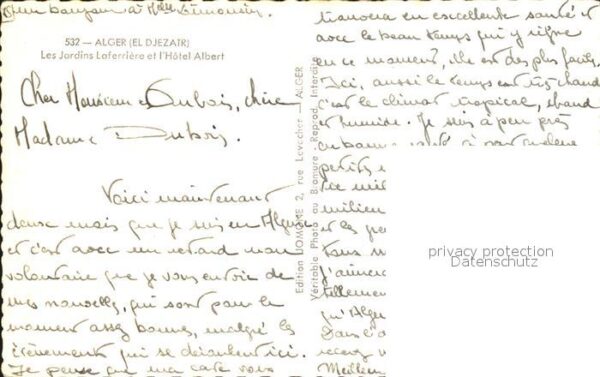 un bonjour à Mme Limousin.
532 — ALGER (EL DJEZAIR)
Les Jardins Laferrière et l'Hôtel Albert
Cher Monsieur Dubois, chère
Madame Dubois.
Voici maintenant
deux mois que je suis en Algérie
et c'est avec un retard non
volontaire que je vous envoie de
mes nouvelles, qui sont pour le
moment assez bonnes, malgré les
évènements qui se déroulent ici.
Je pense que ma carte vous
Edition JOMONE 2, rue Levacher — ALGER
Véritable Photo au Bromure - Reprod. Interdite
trouvera en excellente santé et
avec le beau temps qui y règne
en ce moment, elle est des plus
Ici, aussi le temps est très chaud
c'est le climat tropical, chaud
et humide. Je suis à peu près
en bonne santé
petits
ce mi
milieu
et les
tous
J'aimerais
tellement
qu'Alger
Dans l'
recevez
Meilleurs
privacy protection
Datenschutz